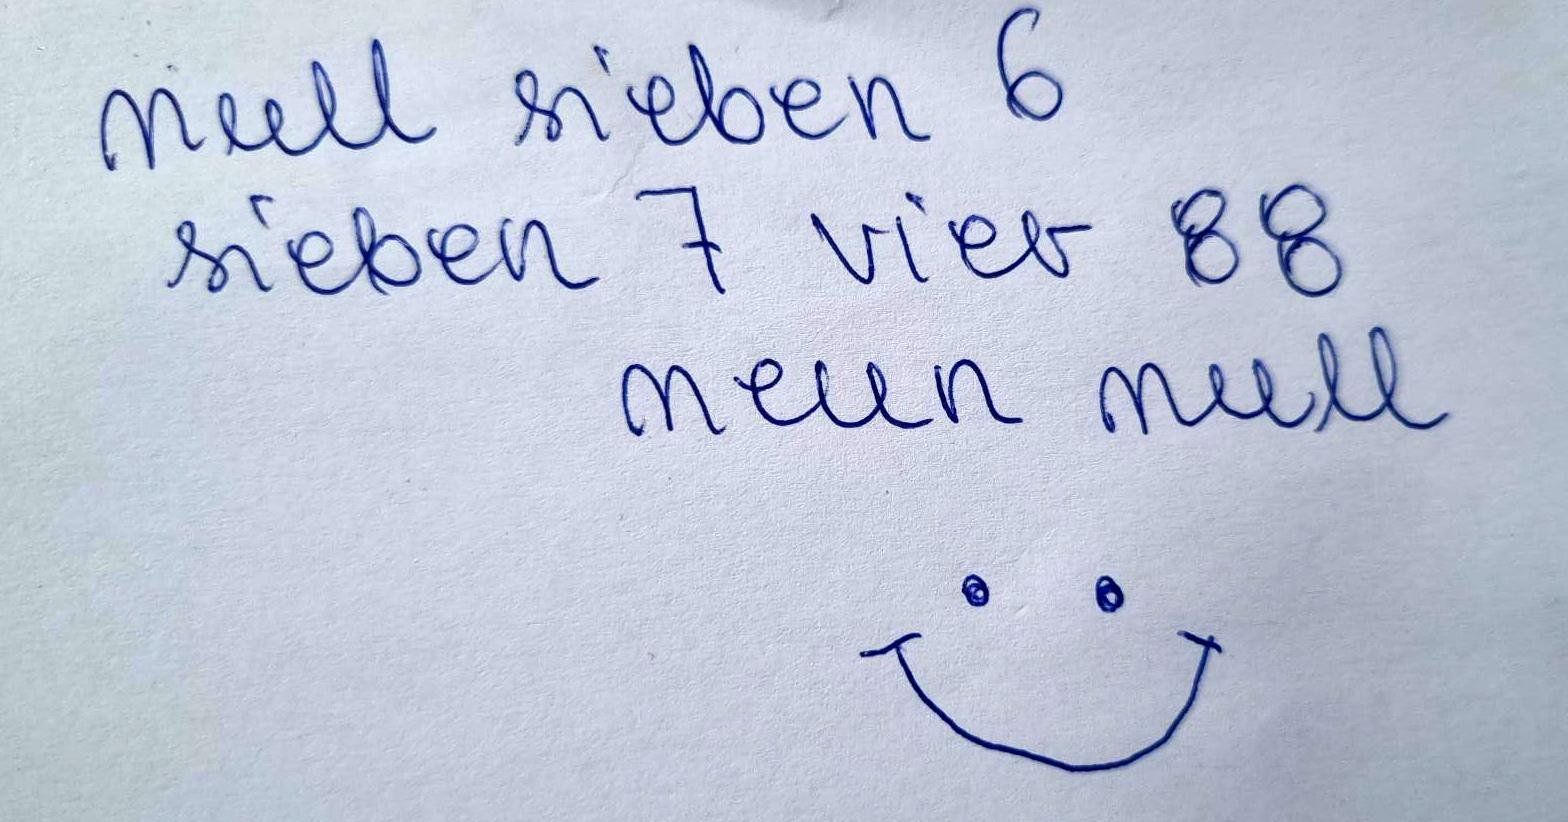 null sieben 6
sieben 7 vier 88
neun null